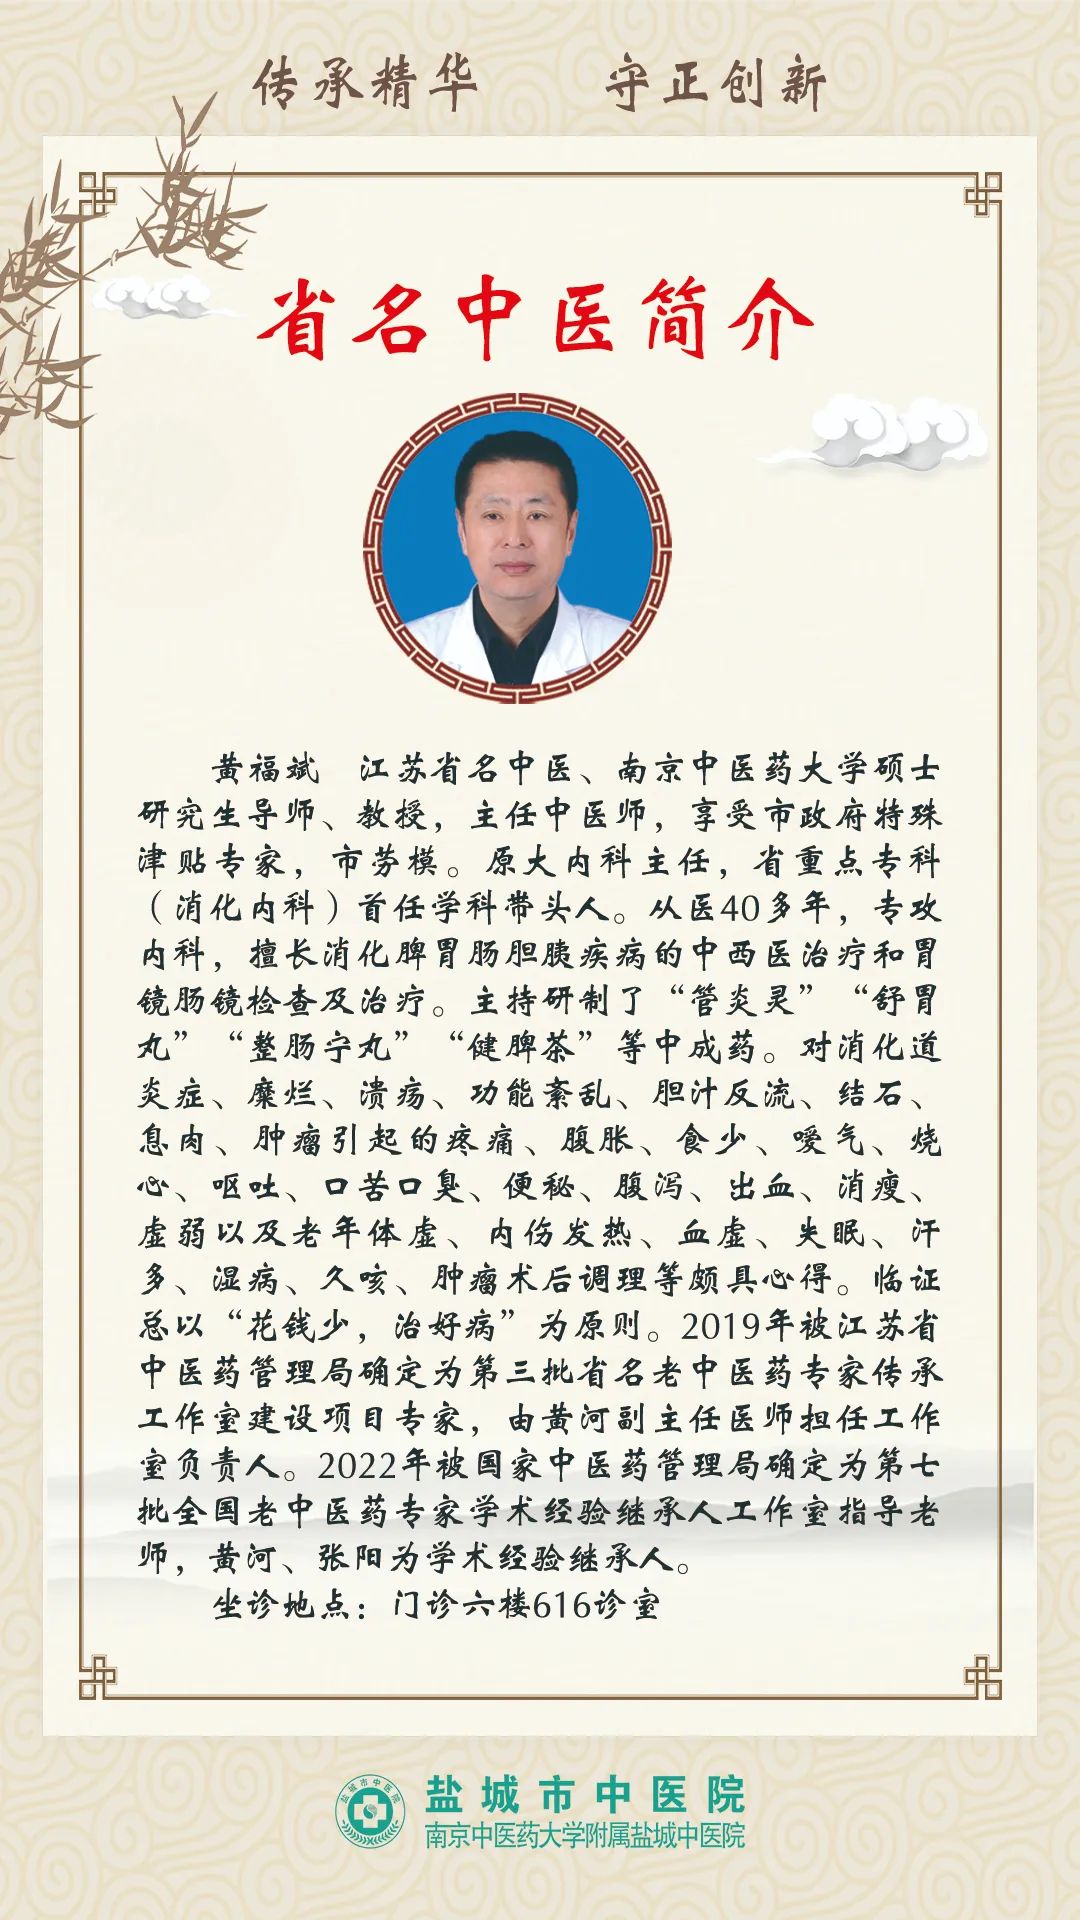 传承精华 守正创新
省名中医简介
黄福斌 江苏省名中医、南京中医药大学硕士
研究生导师、教授，主任中医师，享受市政府特殊
津贴专家，市劳模。原大内科主任，省重点专科
（消化内科）首任学科带头人。从医40多年，专攻
内科，擅长消化脾胃肠胆胰疾病的中西医治疗和胃
镜肠镜检查及治疗。主持研制了“管炎灵”“舒胃
丸”“整肠宁丸”“健脾茶”等中成药。对消化道
炎症、糜烂、溃疡、功能紊乱、胆汁反流、结石、
息肉、肿瘤引起的疼痛、腹胀、食少、嗳气、烧
心、呕吐、口苦口臭、便秘、腹泻、出血、消瘦、
虚弱以及老年体虚、内伤发热、血虚、失眠、汗
多、湿病、久咳、肿瘤术后调理等颇具心得。临证
总以“花钱少，治好病”为原则。2019年被江苏省
中医药管理局确定为第三批省名老中医药专家传承
工作室建设项目专家，由黄河副主任医师担任工作
室负责人。2022年被国家中医药管理局确定为第七
批全国老中医药专家学术经验继承人工作室指导老
师，黄河、张阳为学术经验继承人。
坐诊地点：门诊六楼616诊室
盐城市中医院
盐城市中医院
南京中医药大学附属盐城中医院